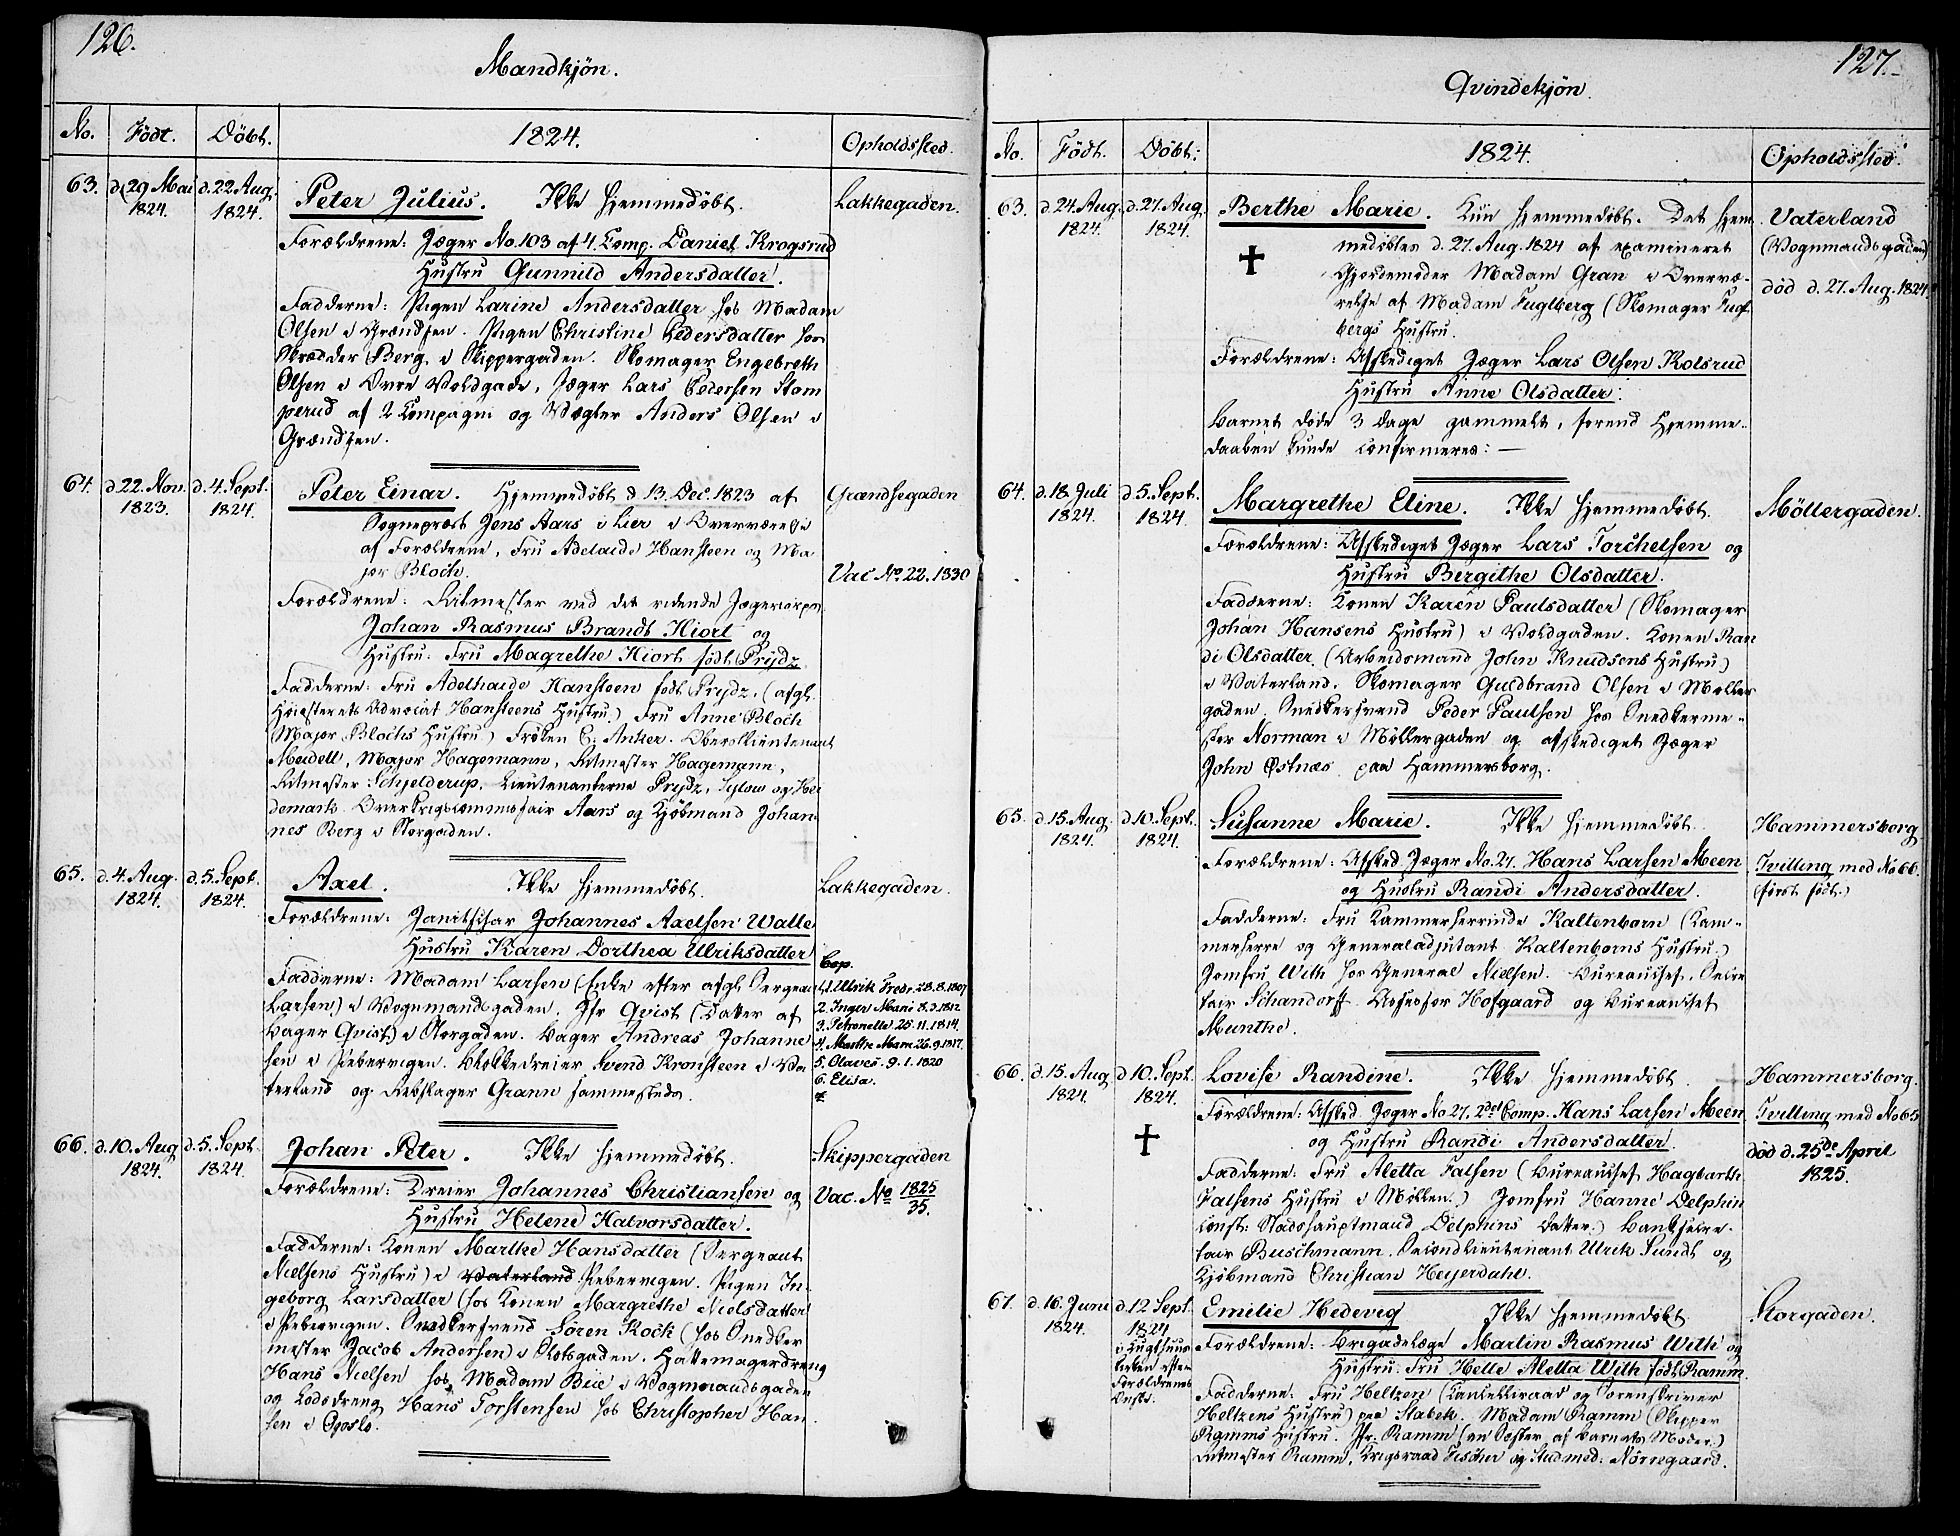 126.
Mandkjön.
No.
Födt.
Döbt.
1824.
Opholdssted.
63.
d. 29 Mai
1824.
d. 22 Aug.
1824.
Peter Julius. Ikke hjemmedöbt.
Lakkegaden.
Forældrene: Jæger No. 103 af 4. Comp. Daniel Krogsrud
Hustru Gunnild Andersdatter.
Fadderne: Pigen Larine Andersdatter hos Madam
Olsen i Grændsen. Pigen Christine Pedersdatter hos
Skrædder Berg i Skippergaden. Skomager Engebreth
Olsen i Övre Voldgade, Jæger Lars Pedersen Stom
perud af 2 Compagni og Vægter Anders Olsen i
Grændsen.
64.
d. 22. Nov.
1823.
d. 4. Sept.
1824.
Peter Einar. Hjemmedöbt d 13. Dec. 1823 af
Grændsegaden
Sognepræst Jens Aars i Lier i Overværelse
af Forældrene, Fru Adelaide Hansteen og Ma
jor Bloch.
Vac No. 22. 1830
Forældrene: Ritmester ved det ridende Jægercorps
Johan Rasmus Brandt Hiort og
Hustru: Fru Magrethe Hiort födt Prydz
Fadderne: Fru Adelhaide Hansteen födt Prydz, (afgl.
Höiesterets Advocat Hansteens Hustru.) Fru Anne Bloch
(Major Blochs Hustru) Fröken C: Anker. Oberstlieutenant
Meidell, Major Hagemann, Ritmester Hagemann,
Ritmester Schjelderup, Lieutenanterne Prydz, Sylow og Hei
demark. Overkrigscommissair Aars og Kjöbmand Johan
nes Berg i Storgaden.
65.
d. 4. Aug.
1824.
d. 5. Sept.
1824.
Axel. Ikke hjemmedöbt.
Lakkegaden.
Forældrene: Janitshar Johannes Axelsen Walle
Hustru Karen Dorthea Ulriksdatter
Fadderne: Madam Larsen (Enke efter afgl. Sergeant
Larsen) i Vognmandsgaden. Jfr Qvist (Datter af
Bager Qvist) i Storgaden. Bager Andreas Johanne
sen i Pebervigen. Blokkedreier Svend Kronsteen i Va
terland og Rebslager Grann sammesteds.
Cop.
1. Ulrik Fredr. 28.8.1807
2. Inger Marie 8.3.1812
3. Petronelle 25.11.1814.
4. Marthe Marie 26.9.1817.
5. Olaves. 9.1.1820
6. Elisa.
66.
d. 10. Aug
1824.
d. 5. Sept.
1824.
Johan Peter. Ikke hjemmedöbt.
Skippergaden
Forældrene: Dreier Johannes Christiansen og
Vac. No 1825/35.
Hustru Helene Halvorsdatter.
Fadderne: Konen Marthe Hansdatter (Sergeant
Nielsens Hustru) i Vaterland Pebervigen. Pigen In-
geborg Larsdatter (hos Konen Margrethe Nielsdatter
i Pebervigen. Snedkersvend Sören Kock (hos Snedker
mester Jacob Andersen) i Slotsgaden. Hattemagerdreng
Hans Nielsen hos Madam Bue i Vognmandsgaden
og Lodsdreng Hans Torstensen hos Christopher Han
sen i Opslo.
127.
Qvindekjön.
No.
Födt.
Döbt.
1824.
Opholdssted.
63.
d. 24. Aug.
1824.
d. 27. Aug.
1824.
Berthe Marie. Kun hjemmedöbt. Det hjem
Vaterland
medöbtes d. 27. Aug. 1824 af examineret
(Vognmandsgaden)
Gjordemoder Madam Gran i Overvæ-
död d. 27. Aug. 1824
relse af Madam Fuglberg (Skomager Fugl
bergs Hustru.
Forældrene: Afskediget Jæger Lars Olsen Kolsrud
Hustru Anne Olsdatter.
Barnet döde 3 Dage gammelt, forend Hjemme-
daaben kunde confirmeres: —
64.
d. 18. Juli
1824.
d 5. Sept.
1824.
Margrethe Eline. Ikke hjemmedöbt.
Möllergaden.
Forældrene: Afskediget Jæger Lars Torchelsen og
Hustru Bergithe Olsdatter.
Fadderne: Konen Karen Paulsdatter (Skomager
Johan Hansens Hustru) i Voldgaden. Konen Ran
di Olsdatter (Arbeidsmand John Knudsens Hustru)
i Vaterland. Skomager Guldbrand Olsen i Möller
gaden. Snedkersvend Peder Paulsen hos Snedkerme-
ster Norman i Möllergaden og afskediget Jæger
John Østnæs paa Hammersborg.
65.
d. 15. Aug.
1824.
d. 10. Sept.
1824.
Susanne Marie. Ikke hjemmedöbt.
Hammersborg
Forældrene: Afsked. Jæger No. 27. Hans Larsen Meen
Tvilling med No 66.
og Hustru Randi Andersdatter.
(först födt.)
Fadderne: Fru Kammerherrinde Kaltenborn (Kam-
merherre og Generaladjutant Kaltenborns Hustru.)
Jomfru With hos General Nielsen. Bureauchef, Secre
tair Schandorff. Assessor Hofgaard og Bureauchef
Munthe.
66.
d. 15. Aug
1824.
d 10. Sept.
1824.
Lovise Randine. Ikke hjemmedöbt.
Hammersborg.
Forældrene: Afsked. Jæger No 27. 2det Comp. Hans Larsen Meen
Tvilling med No 65
og Hustru Randi Andersdatter.
död d. 25de April
1825.
Fadderne: Fru Aletta Falsen (Bureauchef Hagbarth
Falsens Hustru i Möllen.) Jomfru Hanne Delphin
(Const: Stadshauptmand Delphins Datter.) Banksecre-
tair Buschmann. Secondlieutenant Ulrik Sundt og
Kjöbmand Christian Heyerdahl.
67.
d. 16. Juni
1824.
d. 12 Sept.
1824
i Tugthuus
kirken efter
Forældrenes
Önske.
Emilie Hedevig Ikke hjemmedöbt.
Storgaden.
Forældrene: Brigadelæge Martin Rasmus With og
Hustru: Fru Helle Aletta With födt Ramm.
Fadderne: Fru Heltzen (Cancelliraad og Sorenskriver
Heltzens Hustru) paa Stabek. Madam Ramm (Skipper
Ramms Hustru. Jfr. Ramm (en Söster af Barnets Moder.)
Ritmester Ramm, Krigsraad Fischer og Stud. med: Nörregaard.